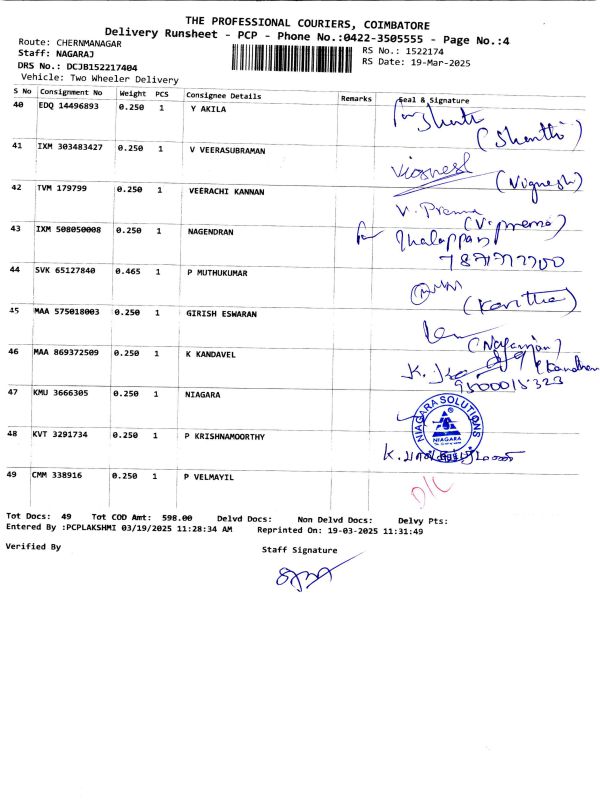 THE PROFESSIONAL COURIERS, COIMBATORE
Delivery Runsheet - PCP - Phone No.:0422-3505555 - Page No.:4
Route: CHERNMANAGAR
Staff: NAGARAJ
DRS No.: DCJB152217404
Vehicle: Two Wheeler Delivery
RS No.: 1522174
RS Date: 19-Mar-2025
S No Consignment No Weight PCS Consignee Details Remarks Seal & Signature
40 EDQ 14496893 0.250 1 Y AKILA
(Shanthi)
41 IXM 303483427 0.250 1 V VEERASUBRAMAN
Vignesh (Vignesh)
42 TVM 179799 0.250 1 VEERACHI KANNAN
V. Prema (V.prema)
43 IXM 508050008 0.250 1 NAGENDRAN
for
44 SVK 65127840 0.465 1 P MUTHUKUMAR
(Kavitha)
45 MAA 575018003 0.250 1 GIRISH ESWARAN
46 MAA 869372509 0.250 1 K KANDAVEL
9500015323
47 KMU 3666305 0.250 1 NIAGARA
NIAGARA SOLUTIONS
NIAGARA
48 KVT 3291734 0.250 1 P KRISHNAMOORTHY
49 CMM 338916 0.250 1 P VELMAYIL
D/C
Tot Docs: 49 Tot COD Amt: 598.00 Delvd Docs: Non Delvd Docs: Delvy Pts:
Entered By :PCPLAKSHMI 03/19/2025 11:28:34 AM Reprinted On: 19-03-2025 11:31:49
Verified By Staff Signature